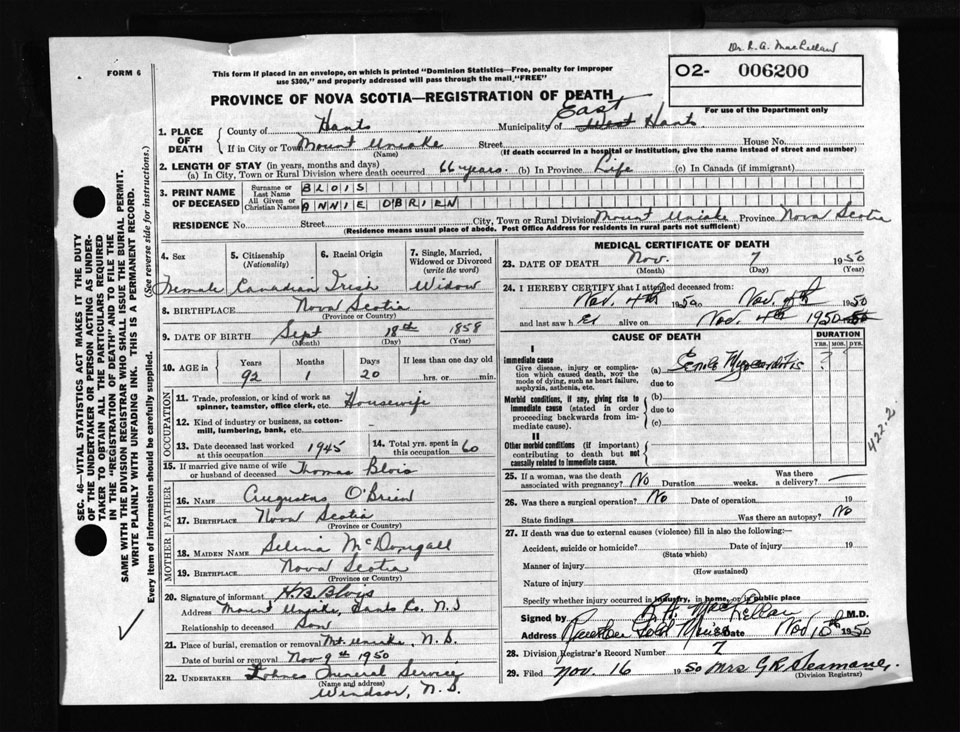 Dr. R. A. MacLellan
FORM 6
This form if placed in an envelope, on which is printed "Dominion Statistics—Free, penalty for improper
use $300," and properly addressed will pass through the mail, "FREE"
O2- 006200
For use of the Department only
PROVINCE OF NOVA SCOTIA—REGISTRATION OF DEATH
1. PLACE OF DEATH { County of Hants Municipality of East West Hants
If in City or Town Mount Uniake (Name) Street House No.
(If death occurred in a hospital or institution, give the name instead of street and number)
2. LENGTH OF STAY (in years, months and days)
(a) In City, Town or Rural Division where death occurred 66 years. (b) In Province Life (c) In Canada (if immigrant)
3. PRINT NAME OF DECEASED { Surname or Last Name BLOIS
All Given or Christian Names ANNIE OBRIEN
RESIDENCE No. Street City, Town or Rural Division Mount Uniake Province Nova Scotia
(Residence means usual place of abode. Post Office Address for residents in rural parts not sufficient)
4. Sex Female
5. Citizenship (Nationality) Canadian
6. Racial Origin Irish
7. Single, Married, Widowed or Divorced (write the word) Widow
8. BIRTHPLACE Nova Scotia
(Province or Country)
9. DATE OF BIRTH Sept 18th 1858
(Month) (Day) (Year)
10. AGE in { Years 92 Months 1 Days 20 If less than one day old hrs. or min.
OCCUPATION
11. Trade, profession, or kind of work as spinner, teamster, office clerk, etc. Housewife
12. Kind of industry or business, as cotton-mill, lumbering, bank, etc. —
13. Date deceased last worked at this occupation 1945
14. Total yrs. spent in this occupation 60
15. If married give name of wife or husband of deceased Thomas Blois
FATHER
16. NAME Augustas O'Brien
17. BIRTHPLACE Nova Scotia
(Province or Country)
MOTHER
18. MAIDEN NAME Selina McDougall
19. BIRTHPLACE Nova Scotia
(Province or Country)
20. Signature of informant H.B. Blois
Address Mount Uniake, Hants Co. N.S
Relationship to deceased Son
21. Place of burial, cremation or removal Mt. Uniake, N.S.
Date of burial or removal Nov 9th 1950
22. UNDERTAKER Funeral Service
(Name and address)
Windsor, N.S.
MEDICAL CERTIFICATE OF DEATH
23. DATE OF DEATH Nov. 7 1950
(Month) (Day) (Year)
24. I HEREBY CERTIFY that I attended deceased from:
Nov. 4th 1950 to Nov. 4th 1950
and last saw h er alive on Nov. 4th 1950
CAUSE OF DEATH
DURATION
YRS. MOS. DYS.
I
Immediate cause
Give disease, injury or complication which caused death, not the mode of dying, such as heart failure, asphyxia, asthenia, etc.
(a) Senile Myocarditis ?
due to
Morbid conditions, if any, giving rise to immediate cause (stated in order proceeding backwards from immediate cause).
(b)
due to
(c)
II
Other morbid conditions (if important) contributing to death but not causally related to immediate cause.
422.2
25. If a woman, was the death associated with pregnancy? No Duration weeks. Was there a delivery? —
26. Was there a surgical operation? No Date of operation 19
State findings Was there an autopsy? No
27. If death was due to external causes (violence) fill in also the following:—
Accident, suicide or homicide? Date of injury 19
(State which)
Manner of injury
(How sustained)
Nature of injury
Specify whether injury occurred in industry, in home, or in public place
Signed by R. A. MacLellan M.D.
Address Gold Mines Date Nov 10th 1950
28. Division Registrar's Record Number 7
29. Filed Nov. 16 1950 Mrs G R Seaman
(Division Registrar)
SEC. 46—VITAL STATISTICS ACT MAKES IT THE DUTY
OF THE UNDERTAKER OR PERSON ACTING AS UNDER-
TAKER TO OBTAIN ALL THE PARTICULARS REQUIRED
IN THE "REGISTRATION OF DEATH" AND TO FILE THE
SAME WITH THE DIVISION REGISTRAR WHO SHALL ISSUE THE BURIAL PERMIT.
WRITE PLAINLY WITH UNFADING INK. THIS IS A PERMANENT RECORD.
Every item of information should be carefully supplied. (See reverse side for instructions.)